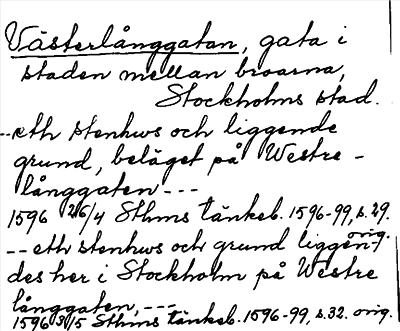 Västerlånggatan, gata i
staden mellan broarna,
Stockholms stad.
--eth stenhws och liggende
grund, beläget på Westre-
långgaten---
1596 26/4 Sthms tänkeb. 1596-99, s. 29.
orig.
--eth stenhws och grund liggen-
des her i Stockholm på Westre
långgaten,---
1596 3/5 Sthms tänkeb. 1596-99, s. 32. orig.